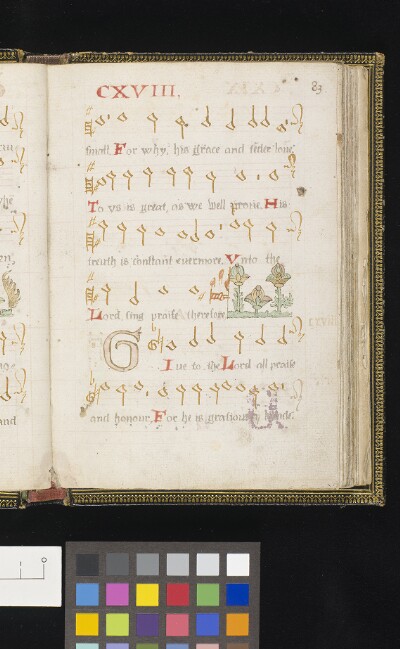 CXVIII. 83
small. For why, his grace and
To vs is great, as we well proue. His
truth is constant euermore. Vnto the
Lord sing praise therefore
Giue to the Lord all praise
and honour, For he is gratious kinde.
and